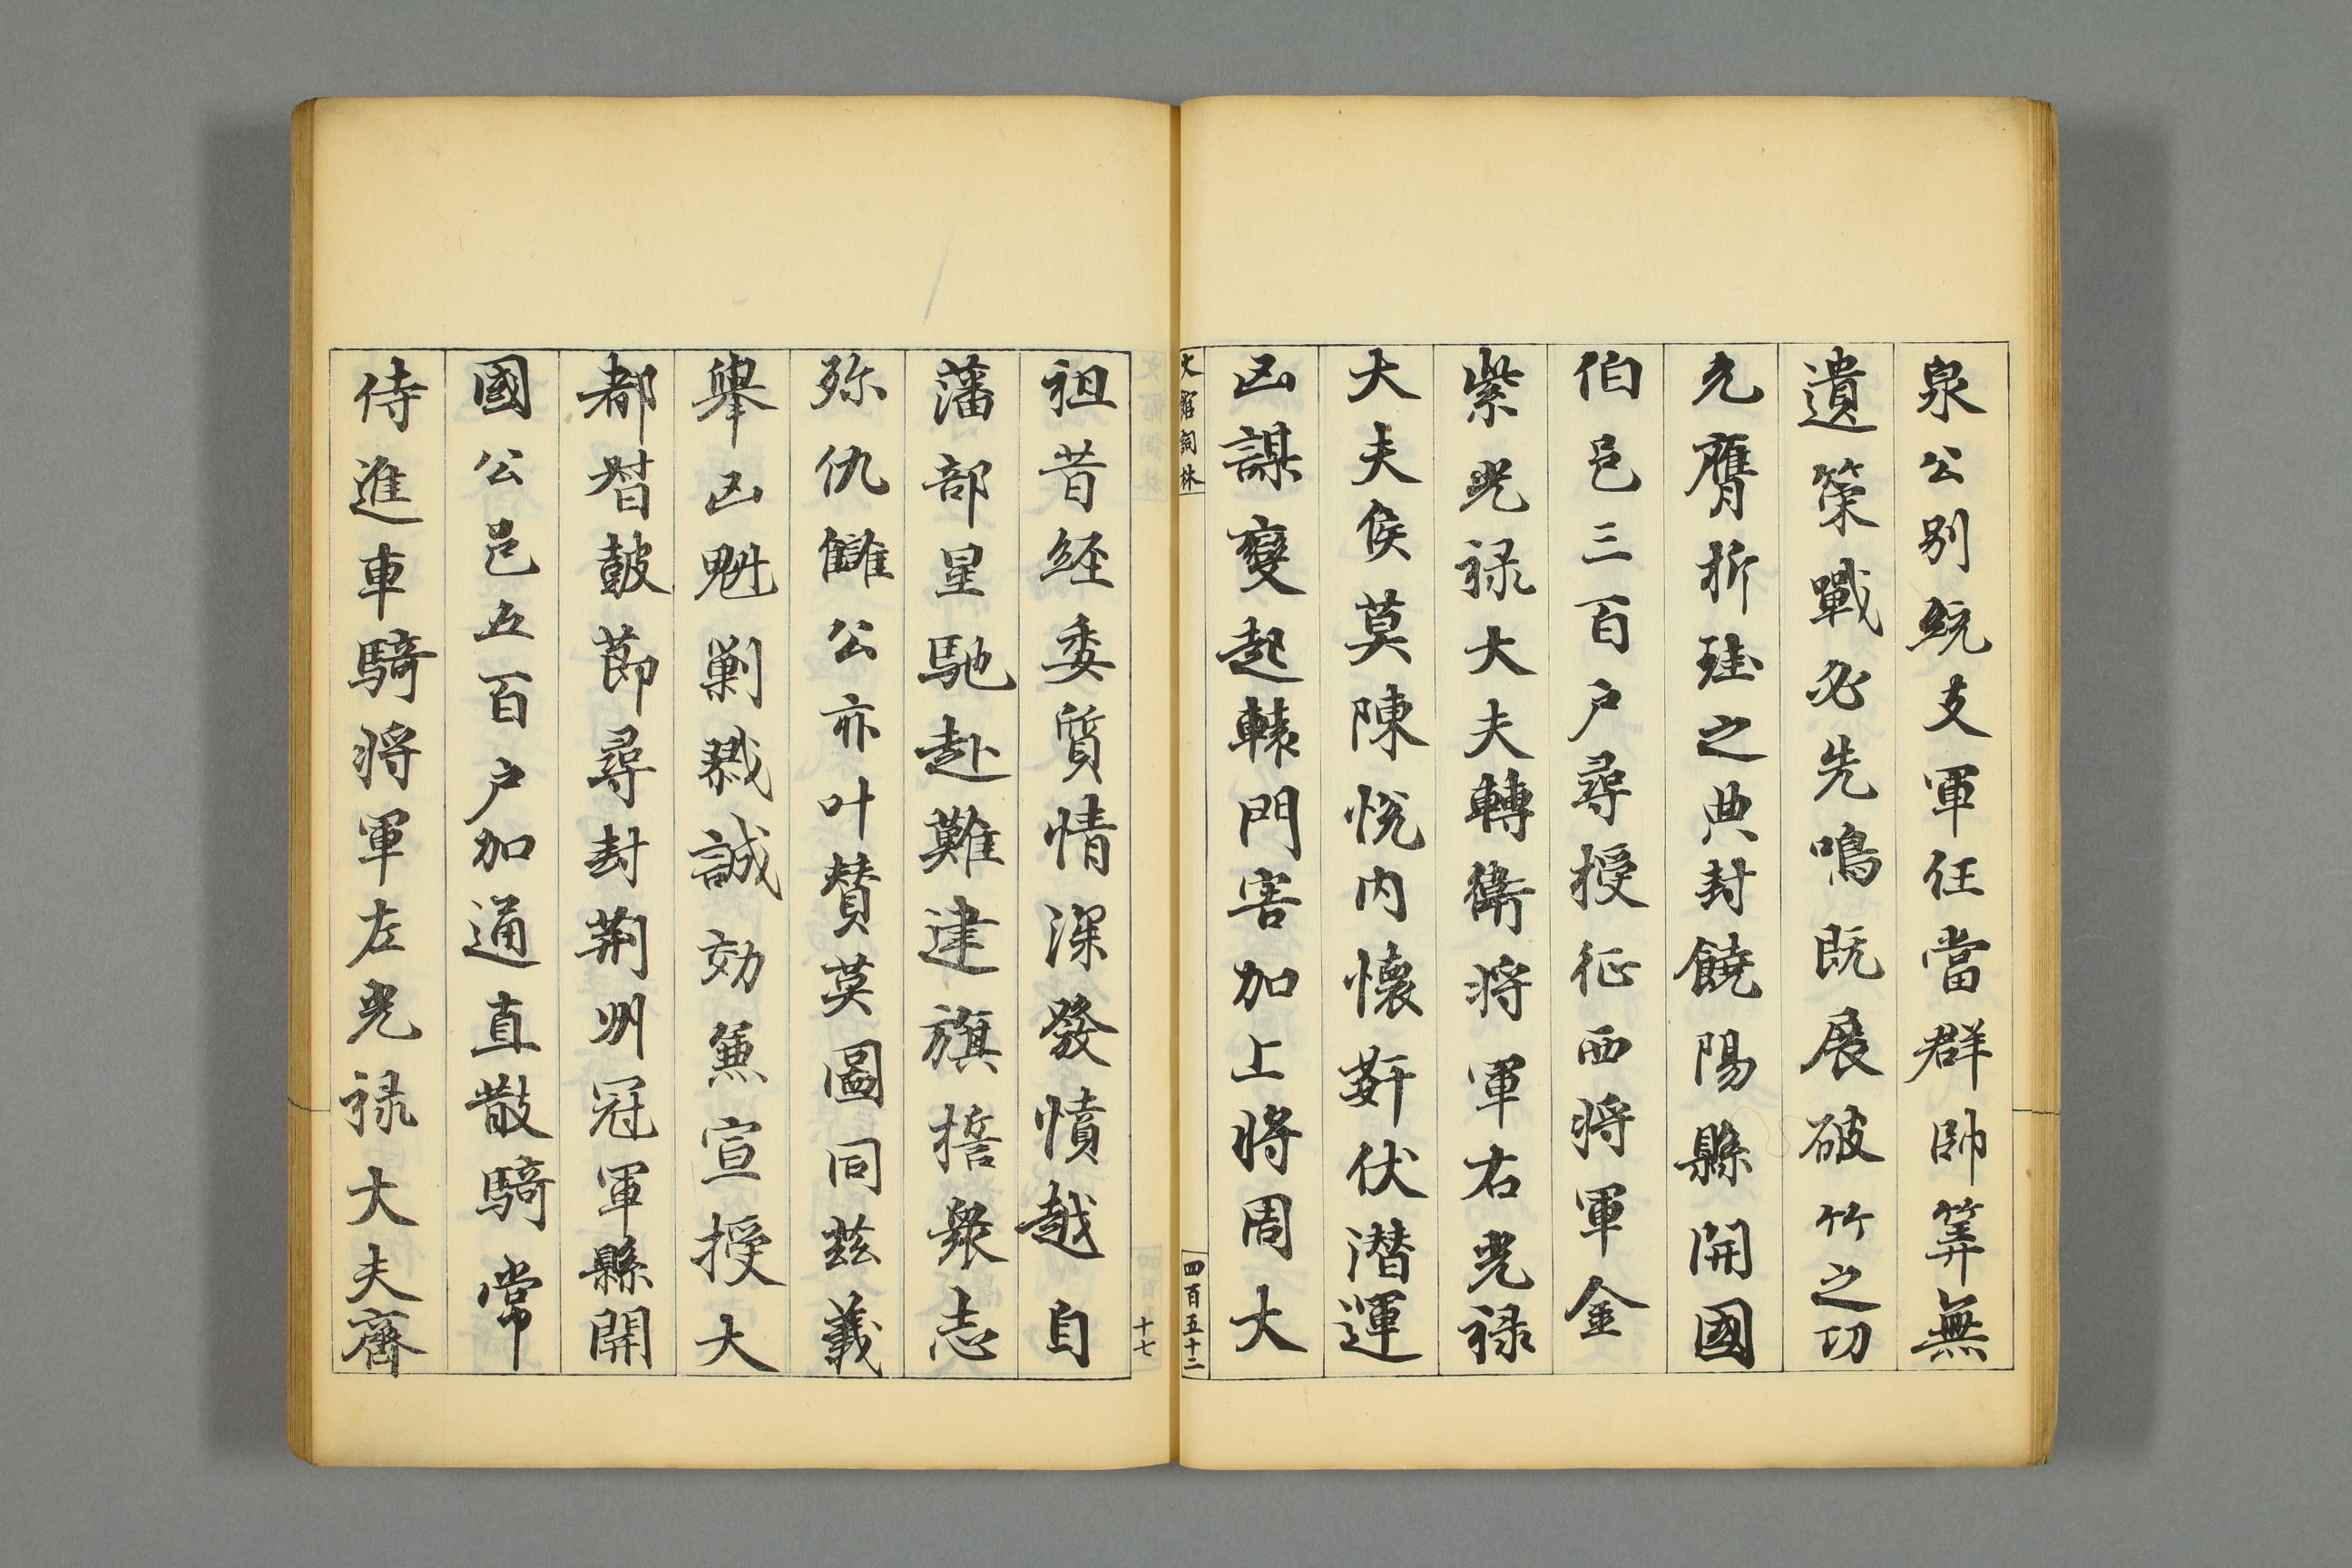 泉公別統支軍任當群帥筭無
遺策戰必先鳴既展破竹之功
允膺析珪之典封饒陽縣開國
伯邑三百户尋授征西將軍金
紫光禄大夫轉衛將軍右光禄
大夫侯莫陳悅内懷姧伏潜運
凶謀變起轅門害加上將周大
文館詞林
四百五十二
十七
祖昔経委質情深發憤越自
藩部星馳赴難建旗誓衆志
弥仇讎公亦叶賛英圖同兹義
舉凶魁剿戮誠効兼宣授大
都督鼓莭尋封荆州冠軍縣開
國公邑五百户加通直散騎常
侍進車騎將軍左光禄大夫齊